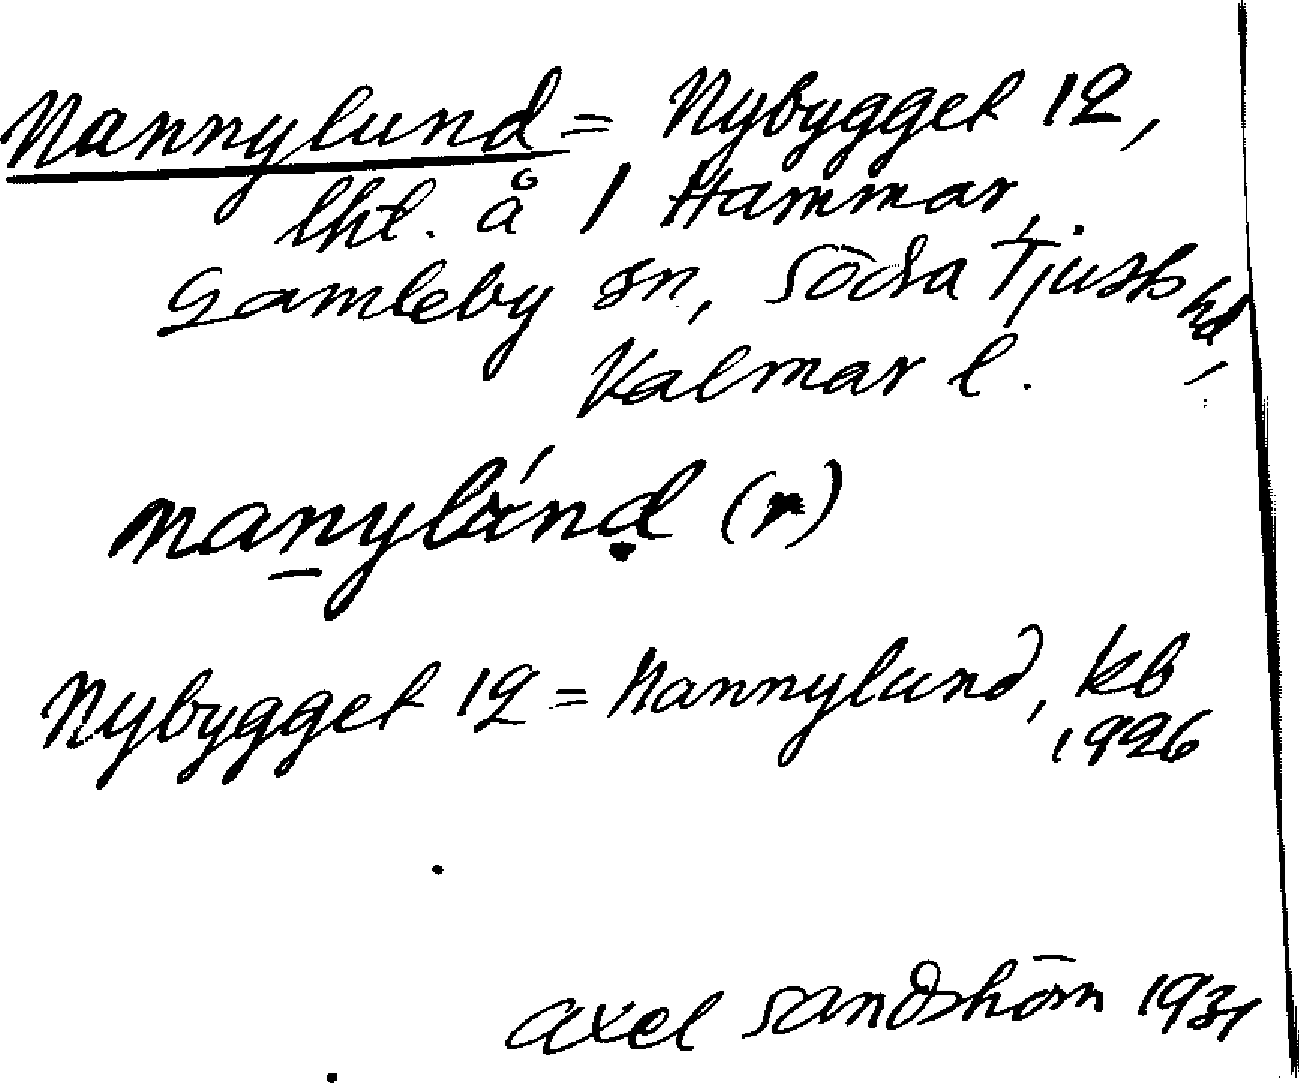 Nannylund = Nybygget 12,
lht. å 1 Hammar,
Gamleby sn, Södra Tjusts hd,
Kalmar l.
nanylúnd (r)
Nybygget 12 = Nannylund, kb
1926
Axel Sandström 1931